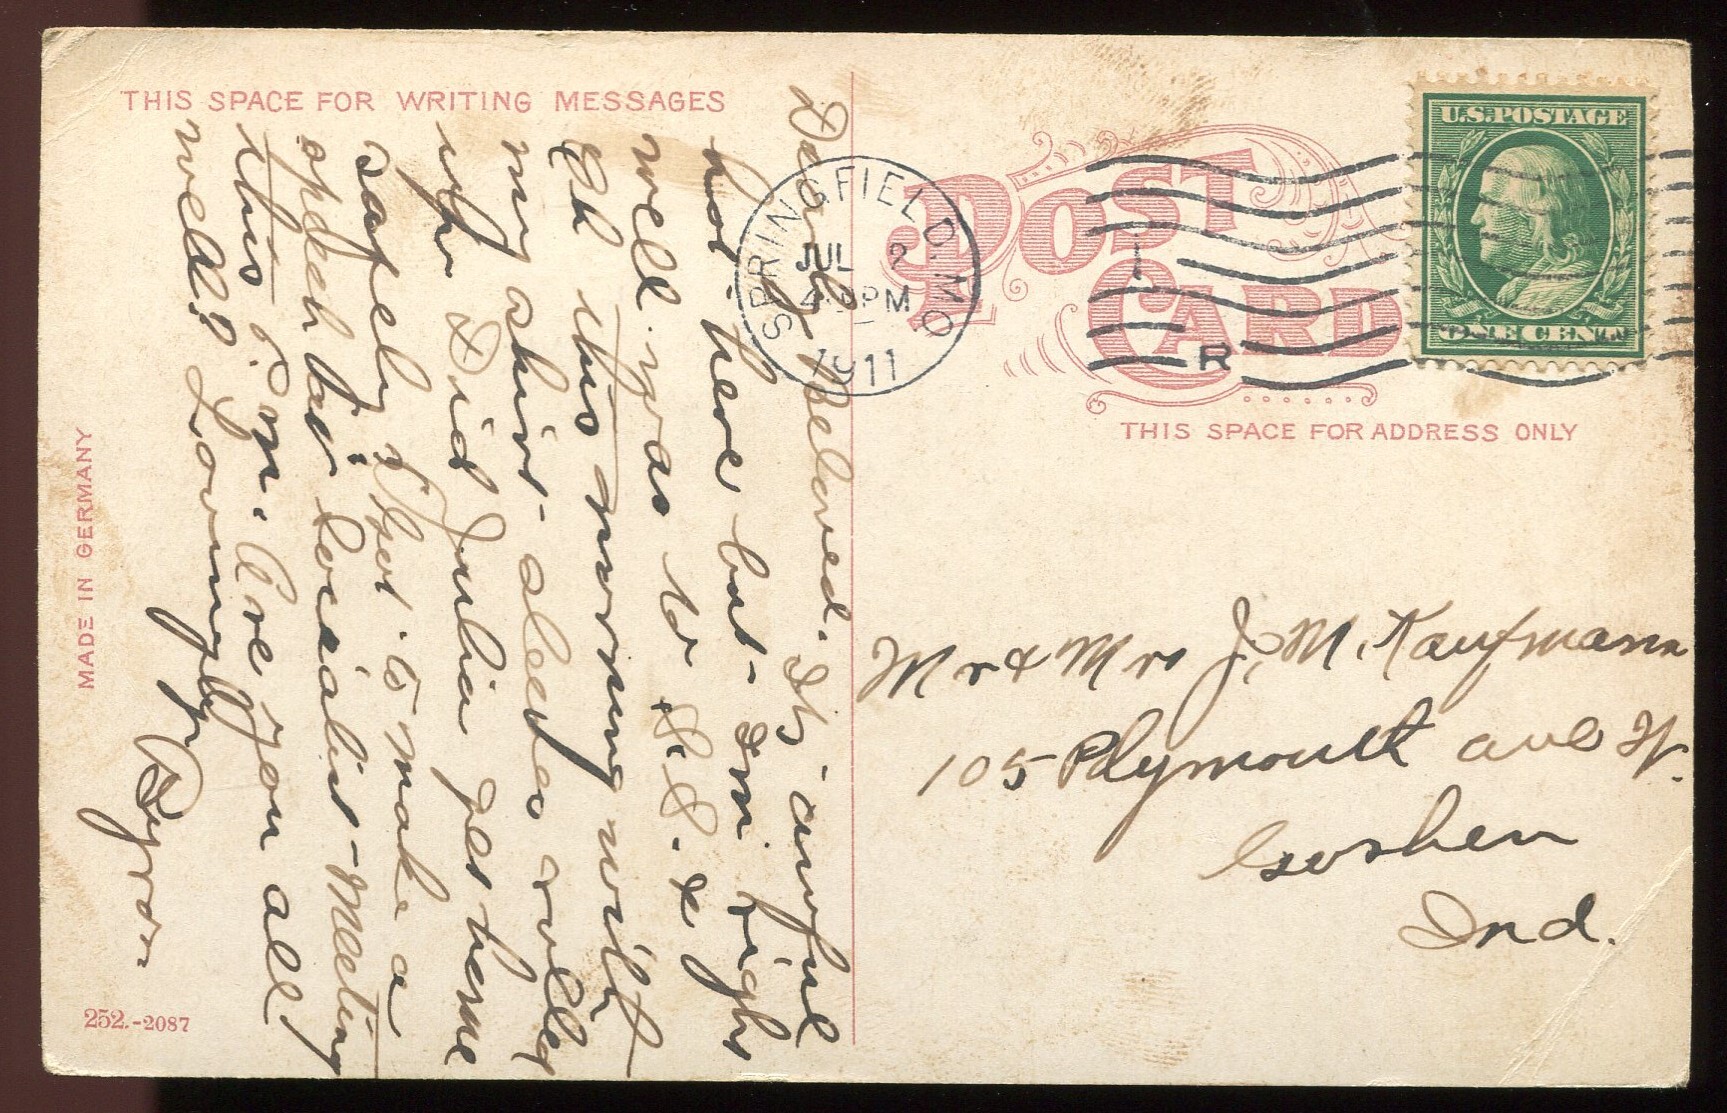 THIS SPACE FOR WRITING MESSAGES
Dearly Beloved. Its awful
hot here but Im right
well. was to S.S. &
Ch this morning with
my shirt sleeves rolled
up. Did Julia get home
safely. I got to make a
speech at Socialist Meeting
this P.m. Are you all
well? Lovingly,
Byron
MADE IN GERMANY
252.-2087
POST CARD
SPRINGFIELD. MO
JUL 2
4 PM
1911
R
U.S. POSTAGE
ONE CENT
THIS SPACE FOR ADDRESS ONLY
Mr & Mrs J. M. Kaufmann
105 Plymouth ave W.
Goshen
Ind.